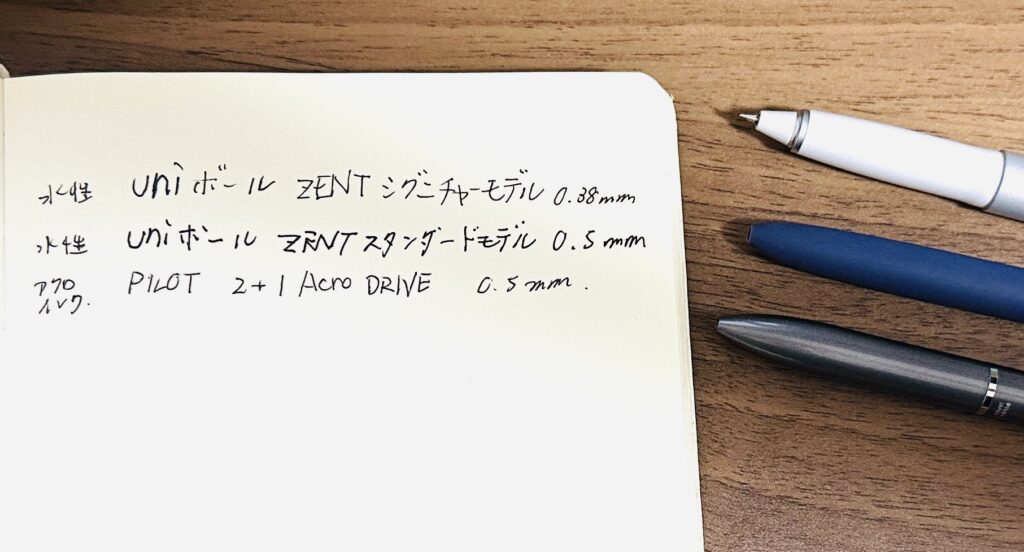 水性 uniボール ZENT シグニチャーモデル 0.38mm
水性 uniボール ZENT スタンダードモデル 0.5mm
アクロインク. PILOT 2+1 Acro DRIVE 0.5mm.